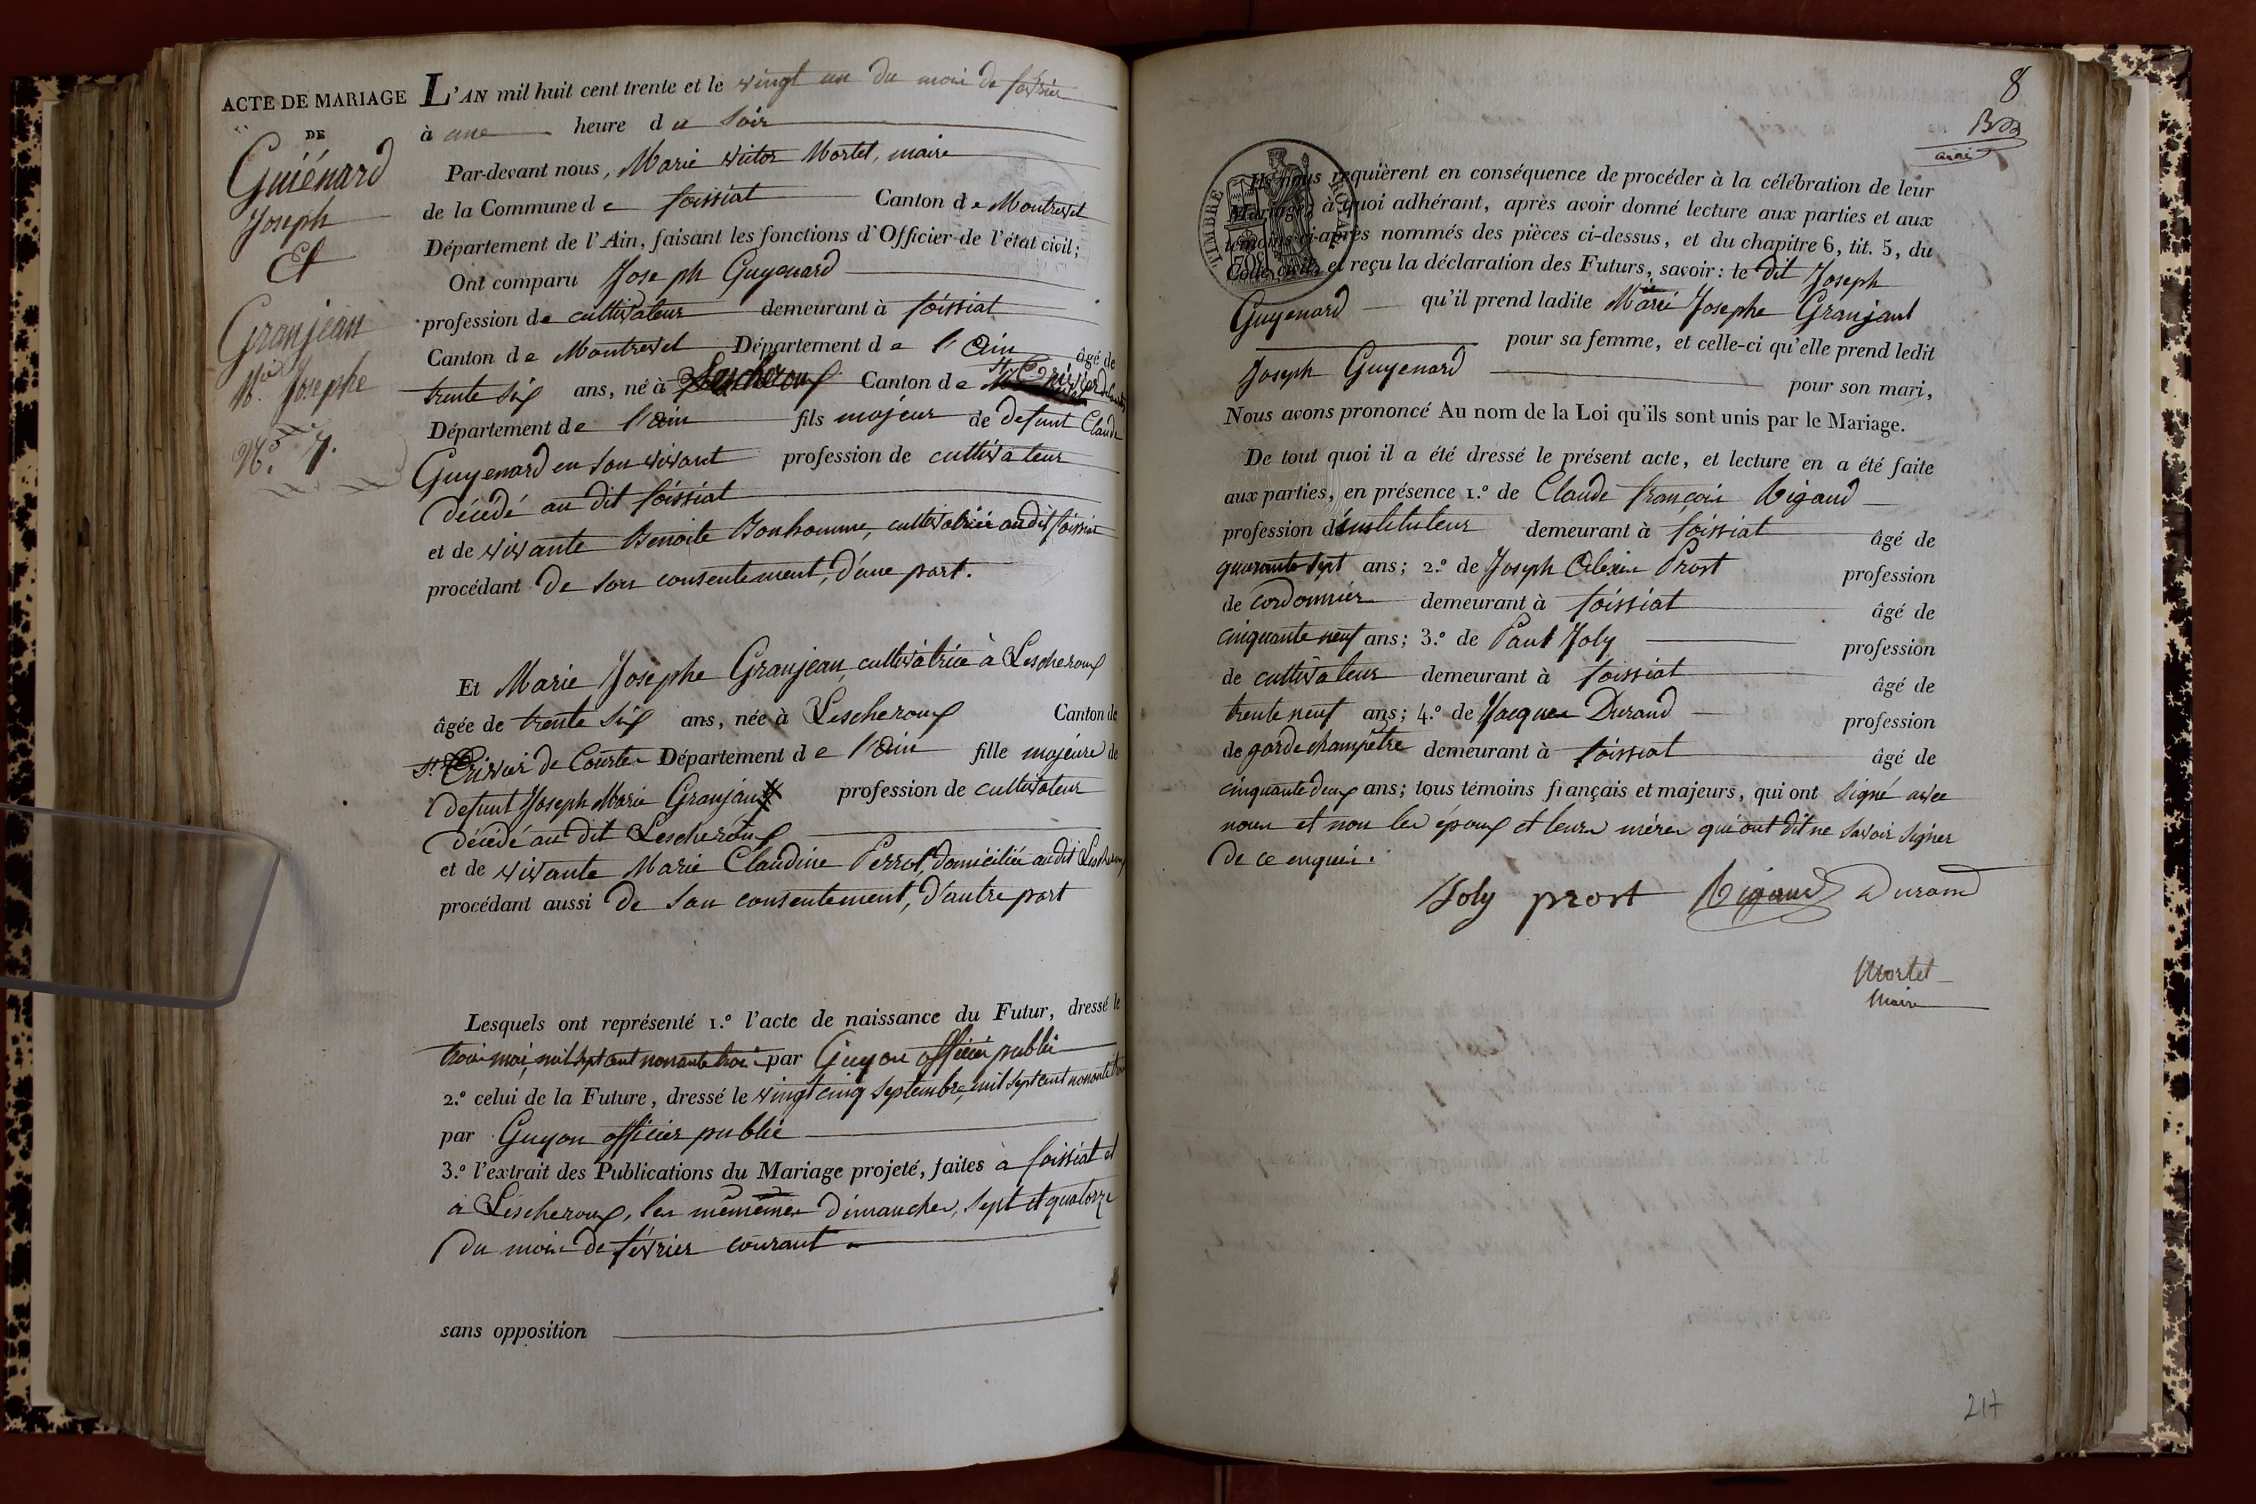 ACTE DE MARIAGE
DE
Guiénard
Joseph
Et
Granjean
M.ie Josephe
N.° 7.
L'AN mil huit cent trente et le vingt un du mois de février
à une heure du soir
Par-devant nous, Marie victor Mortel, maire
de la Commune de foissiat Canton de Montrevel
Département de l'Ain, faisant les fonctions d'Officier de l'état civil;
Ont comparu Joseph Guyenard
profession de cultivateur demeurant à foissiat
Canton de Montrevel Département de l'Ain âgé de
trente six ans, né à Lescheroux Canton de St Trivier de Courtes
Département de l'ain fils majeur de defunt Claude
Guyenard en son vivant profession de cultivateur
décédé au dit foissiat
et de vivante Benoite Bonhomme, cultivatrice audit foissiat
procédant de son consentement, d'une part.
Et Marie Josephe Granjean, cultivatrice à Lescheroux
âgée de trente six ans, née à Lescheroux Canton de
St Trivier de Courtes Département de l'ain fille majeure de
defunt Joseph Marie Granjean profession de cultivateur
décédé au dit Lescheroux
et de vivante Marie Claudine Perrot, domiciliée audit Lescheroux
procédant aussi de son consentement, d'autre part
Lesquels ont représenté 1.° l'acte de naissance du Futur, dressé le
trois mai, mil sept cent nonante trois par Guyon officier public
2.° celui de la Future, dressé le vingt cinq septembre, mil sept cent nonante trois
par Guyon officier public
3.° l'extrait des Publications du Mariage projeté, faites à foissiat et
à Lescheroux, les mêmes dimanches, sept et quatorze
du mois de février courant
sans opposition
8
TIMBRE ROYAL
Ils nous requièrent en conséquence de procéder à la célébration de leur
Mariage, à quoi adhérant, après avoir donné lecture aux parties et aux
témoins ci-après nommés des pièces ci-dessus, et du chapitre 6, tit. 5, du
Code civil, et reçu la déclaration des Futurs, savoir: le dit Joseph
Guyenard qu'il prend ladite Marie Josephe Granjant
pour sa femme, et celle-ci qu'elle prend ledit
Joseph Guyenard pour son mari,
Nous avons prononcé Au nom de la Loi qu'ils sont unis par le Mariage.
De tout quoi il a été dressé le présent acte, et lecture en a été faite
aux parties, en présence 1.° de Claude françois Rigaud
profession d'instituteur demeurant à foissiat âgé de
quarante sept ans; 2.° de Joseph Alexis Prost profession
de cordonnier demeurant à foissiat âgé de
cinquante neuf ans; 3.° de Paul Joly profession
de cultivateur demeurant à foissiat âgé de
trente neuf ans; 4.° de Jacques Durand profession
de garde champêtre demeurant à foissiat âgé de
cinquante deux ans; tous témoins français et majeurs, qui ont signé avec
nous et non les époux et leurs mères qui ont dit ne savoir signer
de ce enquis.
Joly prost Rigaud Durand
Mortel
Maire
217